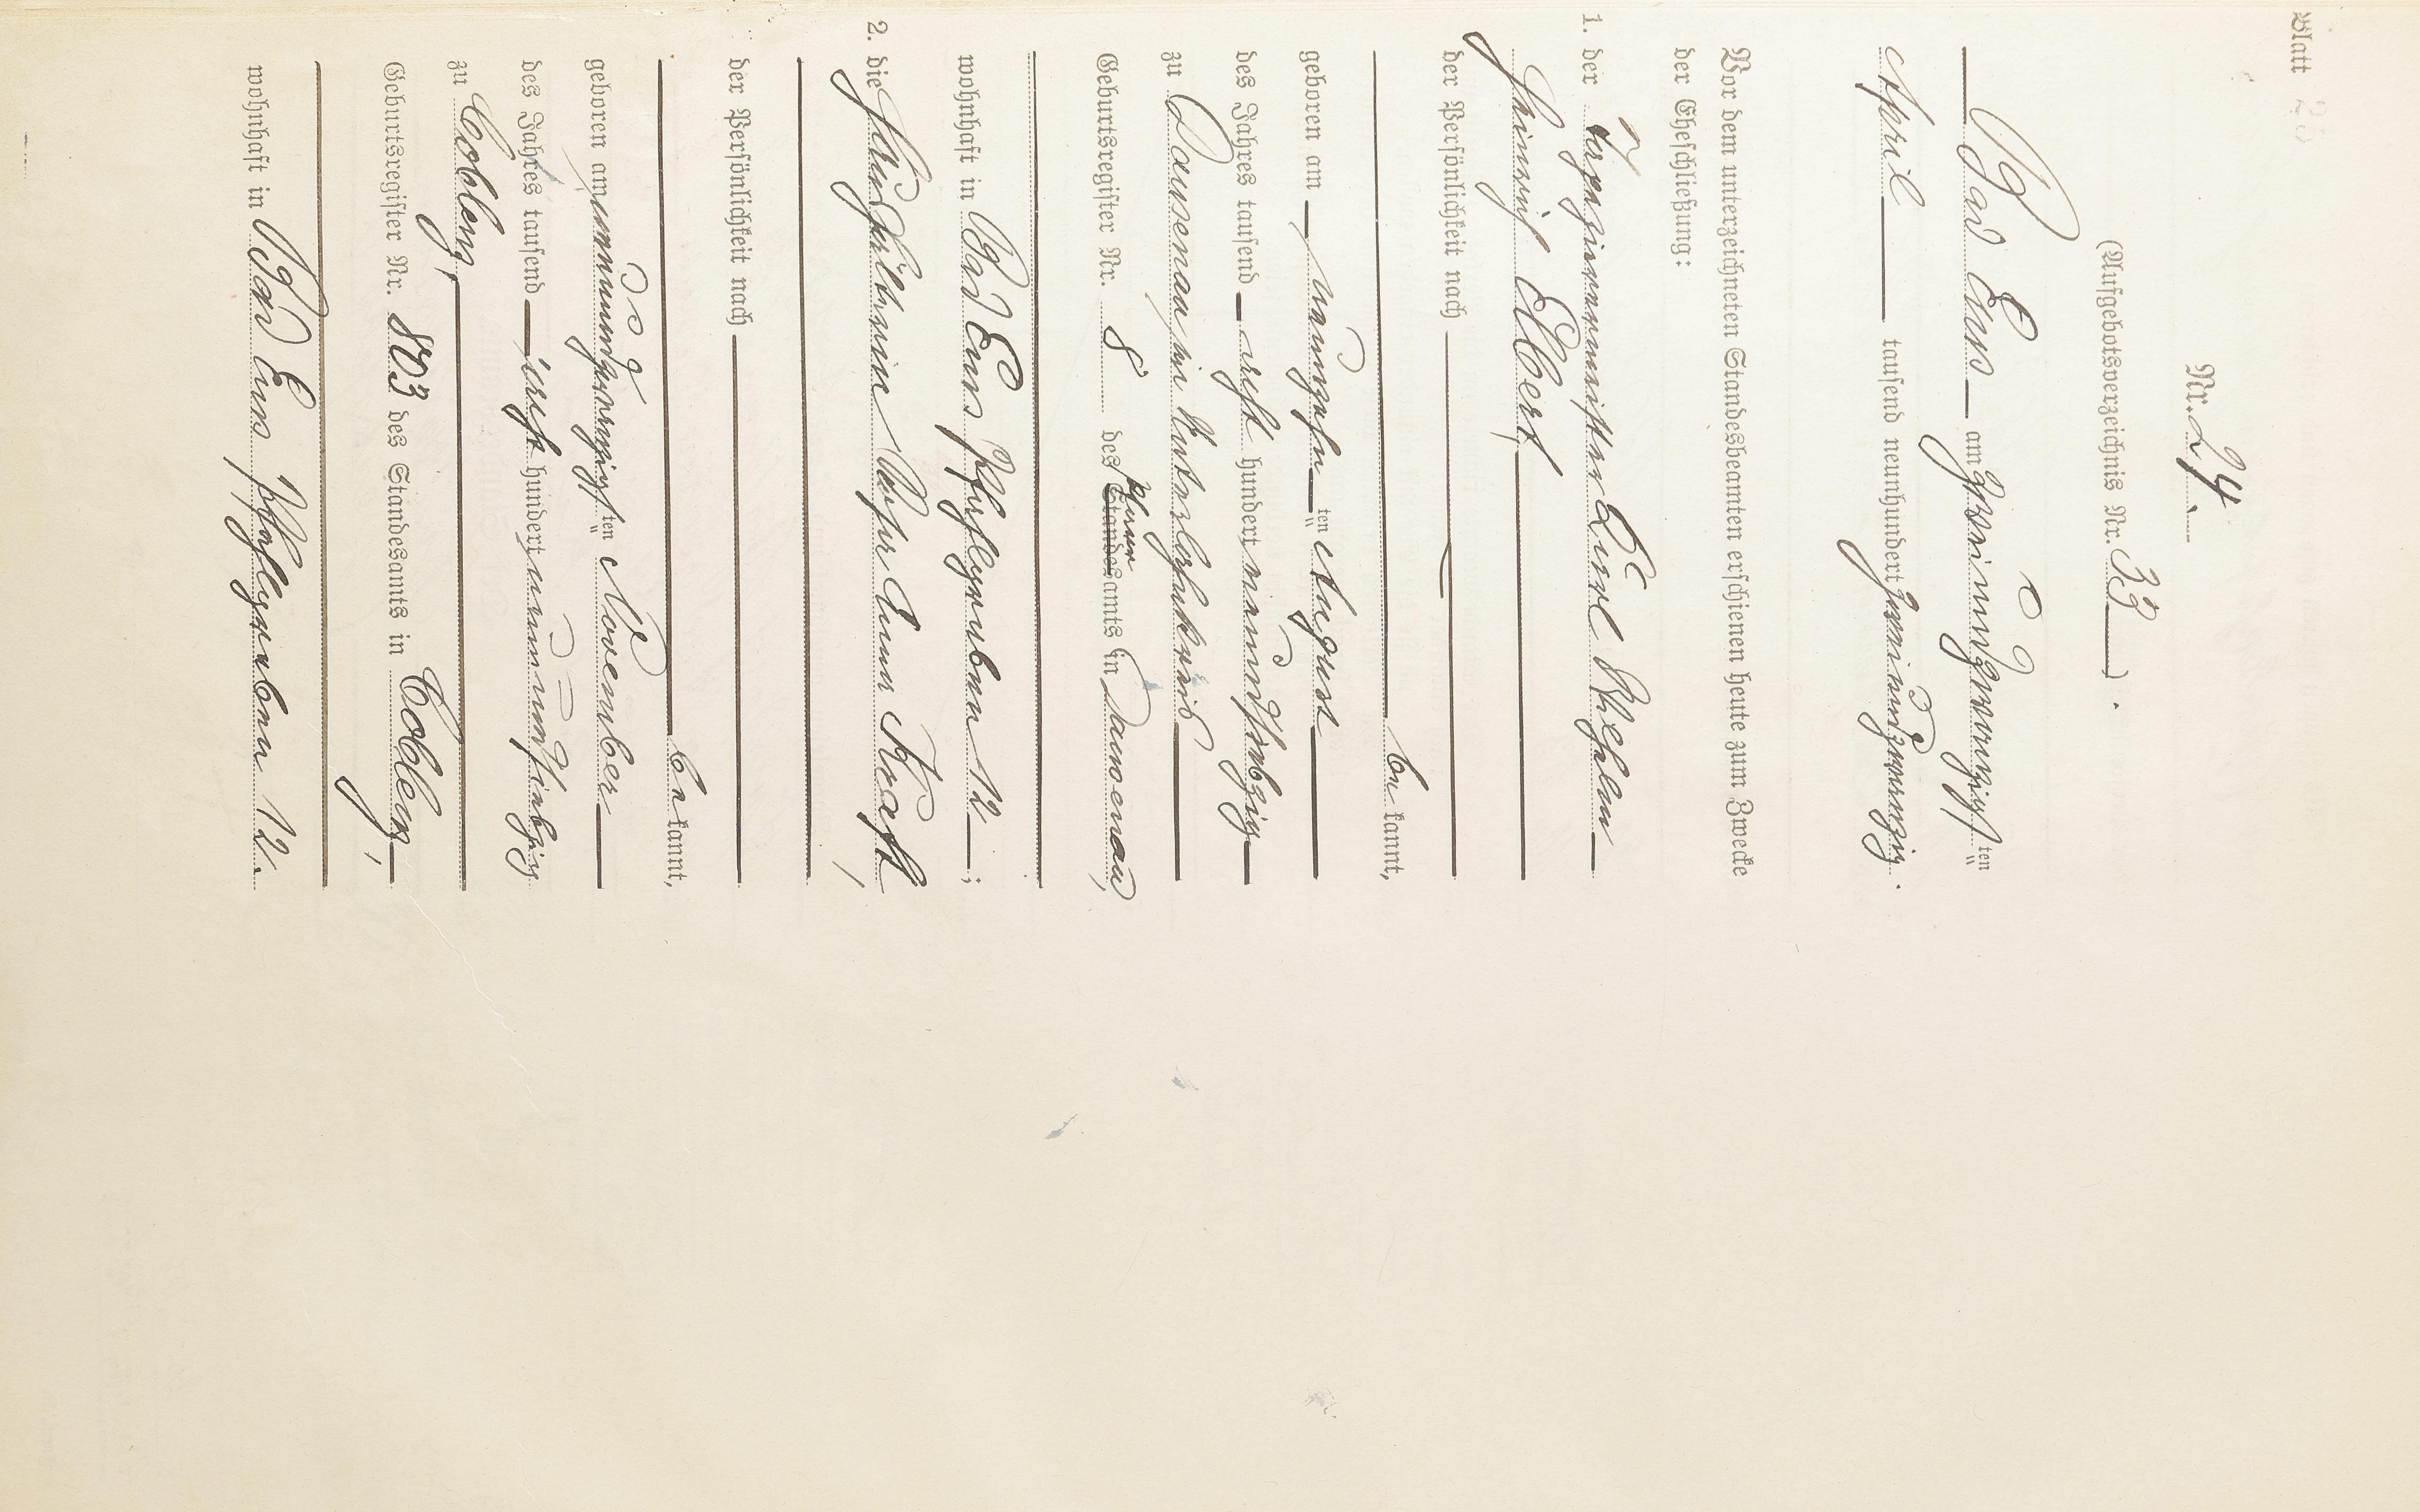 Blatt
Nr. 24.
(Aufgebotsverzeichnis Nr. 33).
Bad Ems am zweiundzwanzigsten
April tausend neunhundert zweiundzwanzig.
Vor dem unterzeichneten Standesbeamten erschienen heute zum Zwecke
der Eheschließung:
1. der Karl Wilhelm
Heinrich Elbert,
der Persönlichkeit nach
be kannt,
geboren am neunzehnten August
des Jahres tausend acht hundert neunundsiebzig
zu Dausenau im Unterlahnkreis
Geburtsregister Nr. 8 des Standesamts in Dausenau,
wohnhaft in Bad Ems Pfahlgraben 12;
2. die Anna Kraft,
der Persönlichkeit nach
be kannt,
geboren am neunundzwanzigsten November
des Jahres tausend acht hundert neunundsiebzig
zu Coblenz,
Geburtsregister Nr. 803 des Standesamts in Coblenz,
wohnhaft in Bad Ems Pfahlgraben 12.